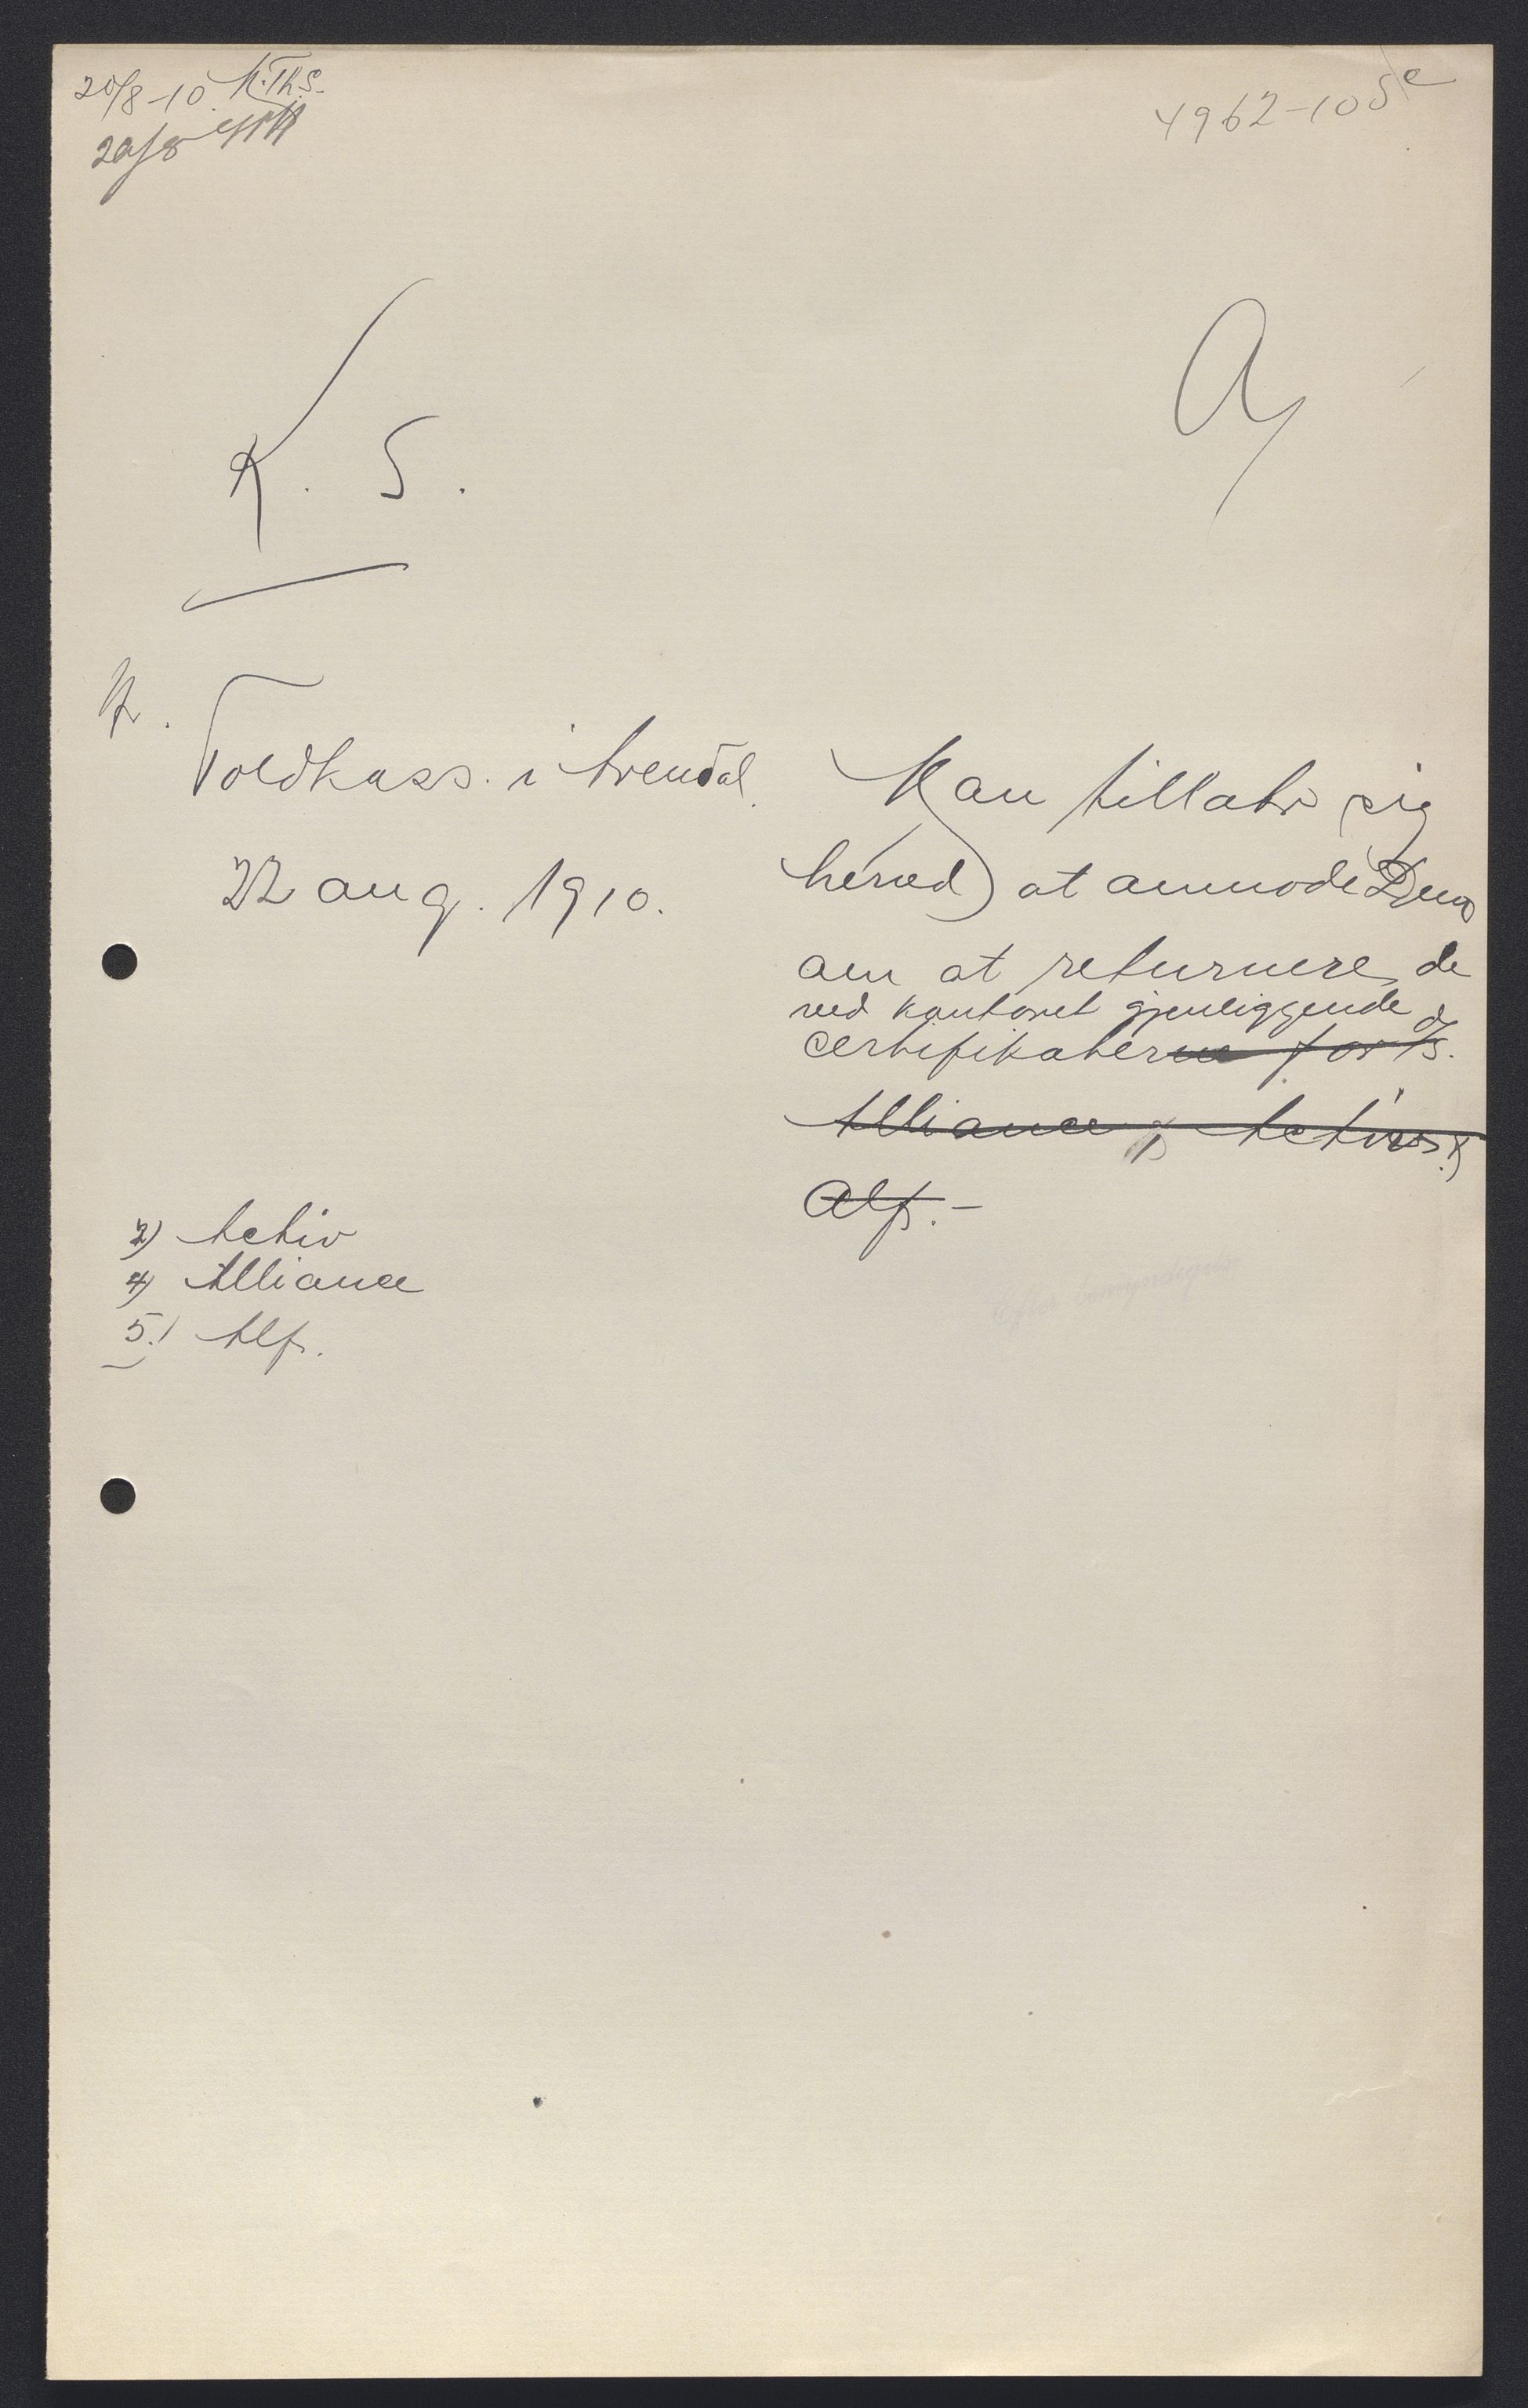 20/8-10. K.Th.S.
20/8
4962-10 S e
K. S.
A
Toldkass. i Arendal.
22 aug. 1910.
Man tillater sig
herved at anmode Dem
om at returnere de
ved kontoret gjenliggende
certifikaterne for D/S.
Alliance, Activ &
Alf. -
2) Activ
4) Alliance
5.) Alf.